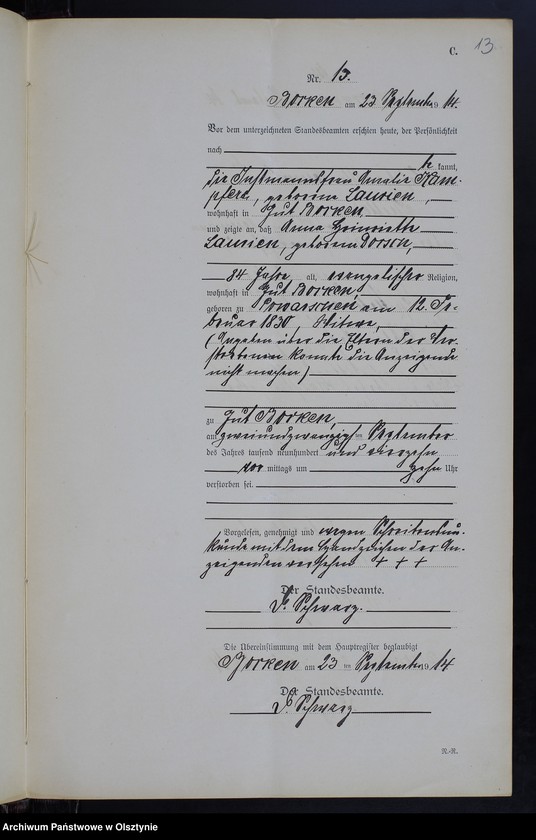 13
C.
Nr. 13.
Borken am 23 September 1914.
Vor dem unterzeichneten Standesbeamten erschien heute, der Persönlichkeit
nach
be kannt,
die Instmannsfrau Amalie Käm-
pfert, geborene Laurien,
wohnhaft in Gut Borken,
und zeigte an, daß Anna Heinriette
Laurien, geborene Dorsch,
84 Jahre alt, evangelischer Religion,
wohnhaft in Gut Borken,
geboren zu am 12. Fe-
bruar 1830, Witwe,
(Angaben über die Eltern der Ver-
storbenen konnte die Anzeigende
nicht machen)
zu Gut Borken,
am zweiundzwanzigsten September
des Jahres tausend neunhundert und vierzehn
vor mittags um zehn Uhr
verstorben sei.
Vorgelesen, genehmigt und wegen Schreibensun-
kunde mit dem Handzeichen der An-
zeigenden versehen + + +
Der Standesbeamte.
Schwarz.
Die Übereinstimmung mit dem Hauptregister beglaubigt
Borken am 23 ten September 1914
Der Standesbeamte.
Schwarz
N.-R.
Archiwum Państwowe w Olsztynie